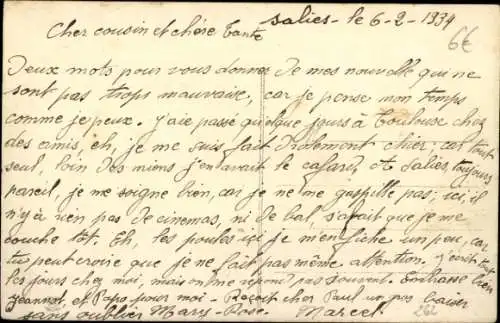 Salies - le 6-2-1934
6€
Cher cousin et chère Tante
Deux mots pour vous donner de mes nouvelle qui ne
sont pas trops mauvaise, car je pense mon temps
comme je peux. J'aie passé quelque jours à Toulouse chez
des amis, eh, je me suis fait drolement chier, car tout
seul, loin des miens j'en avait le cafard, et Salies, toujours
pareil, je me soigne bien, car je ne me gaspille pas, ici, il
n'y à rien pas de cinemas, ni de bal, s'a fait que je me
couche tôt. Eh, les poules ici je m'en fiche un peu, car
tu peut croire que je ne fait pas même attention. J'écrit tout
les jours chez moi, mais on me répond pas souvent. Embrasse bien
Jeannot, et Papo pour moi - Reçoit cher Paul un gros baiser
sans oublier Mary-Rose. Marcel